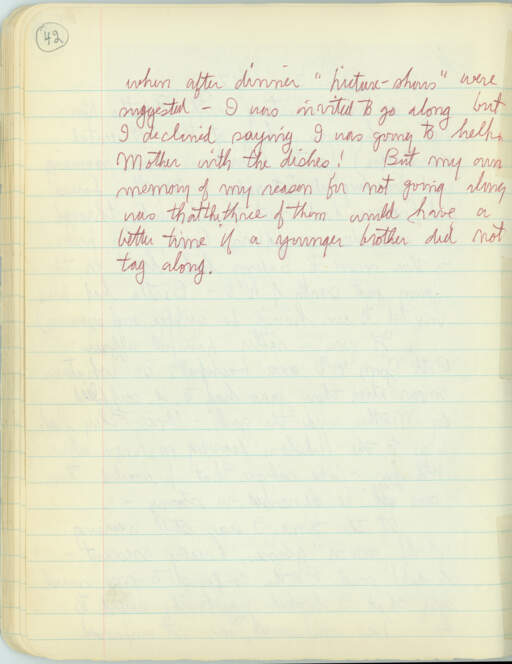 42
when after dinner "picture-shows" were
suggested - I was invited to go along but
I declined saying I was going to help
Mother with the dishes! But my own
memory of my reason for not going along
was that the three of them would have a
better time if a younger brother did not
tag along.